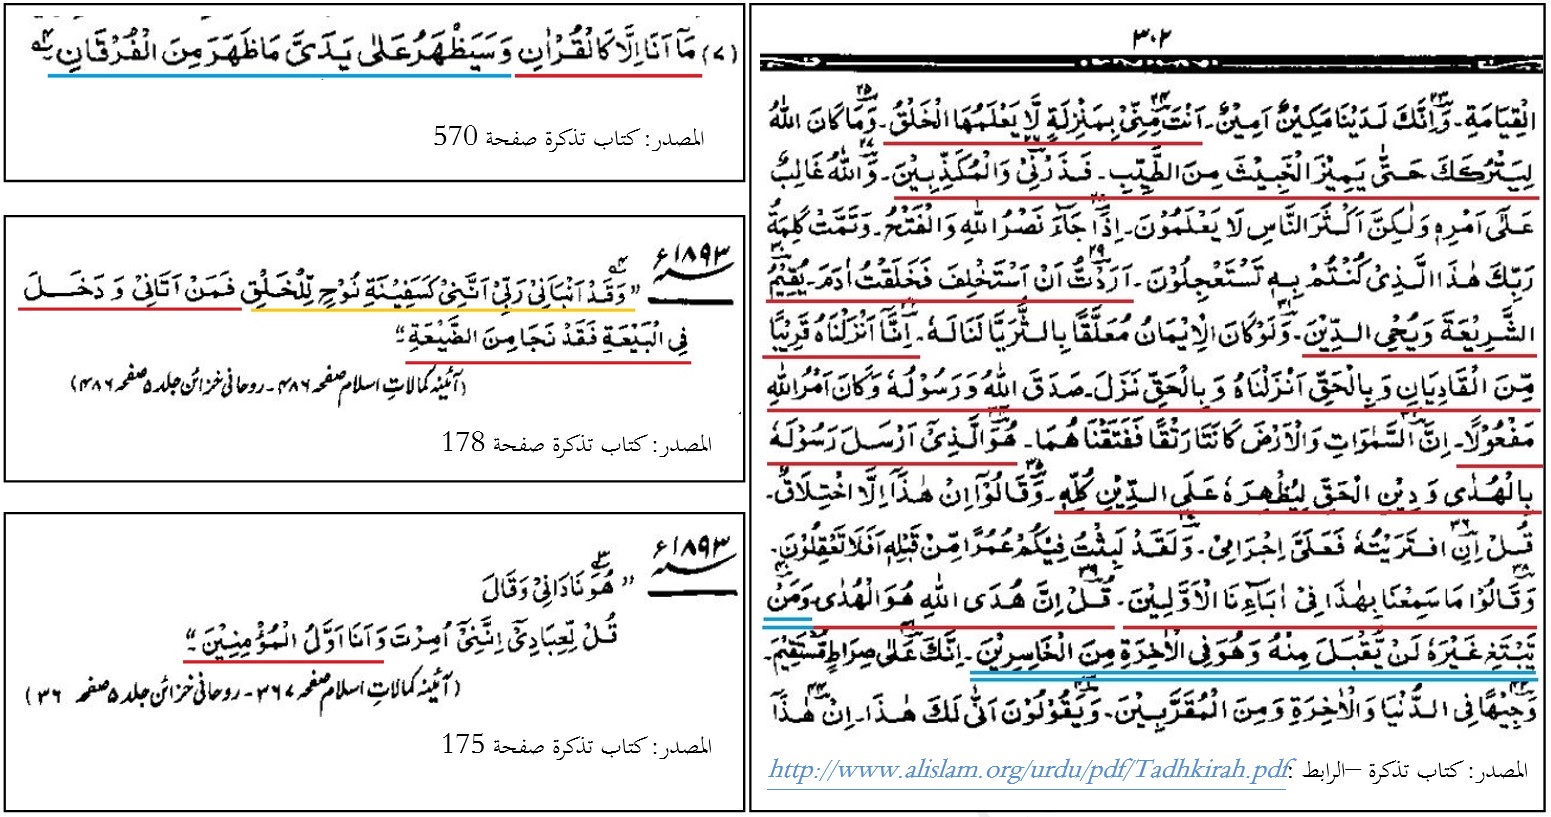 (۷) مَآ اَنَا اِلَّا كَالْقُرْاٰنِ وَسَيَظْهَرُ عَلٰى يَدَىَّ مَاظَهَرَ مِنَ الْفُرْقَانِ ۔
المصدر: كتاب تذكرة صفحة 570
۱۸۹۳ء
"وَقَدْ اَنْبَاَنِىْ رَبِّىْ اَنَّنِىْ كَسَفِيْنَةِ نُوْحٍ لِّلْخَلْقِ فَمَنْ اَتَانِىْ وَ دَخَلَ
فِى الْبَيْعَةِ فَقَدْ نَجَا مِنَ الضَّيْعَةِ"
(آئینہ کمالاتِ اسلام صفحہ ۴۸۶۔ روحانی خزائن جلد ۵ صفحہ ۴۸۶)
المصدر: كتاب تذكرة صفحة 178
۱۸۹۳ء
"هُوَ نَادَانِىْ وَقَالَ
قُلْ لِّعِبَادِىْٓ اِنَّنِىْٓ اُمِرْتُ وَاَنَا اَوَّلُ الْمُؤْمِنِيْنَ"
(آئینہ کمالاتِ اسلام صفحہ ۳۶۷۔ روحانی خزائن جلد ۵ صفحہ ۳۶)
المصدر: كتاب تذكرة صفحة 175
۳۰۲
الْقِيَامَةِ۔ وَّاِنَّكَ لَدَيْنَا مَكِيْنٌ اَمِيْنٌ۔ اَنْتَ مِنِّىْ بِمَنْزِلَةٍ لَّا يَعْلَمُهَا الْخَلْقُ۔ وَمَا كَانَ اللّٰهُ
لِيَتْرُكَكَ حَتّٰى يَمِيْزَ الْخَبِيْثَ مِنَ الطَّيِّبِ۔ فَذَرْنِىْ وَالْمُكَذِّبِيْنَ۔ وَاللّٰهُ غَالِبٌ
عَلٰٓى اَمْرِهٖ وَلٰكِنَّ اَكْثَرَ النَّاسِ لَا يَعْلَمُوْنَ۔ اِذَا جَآءَ نَصْرُ اللّٰهِ وَالْفَتْحُ۔ وَتَمَّتْ كَلِمَةُ
رَبِّكَ هٰذَا الَّذِىْ كُنْتُمْ بِهٖ تَسْتَعْجِلُوْنَ۔ اَرَدْتُّ اَنْ اَسْتَخْلِفَ فَخَلَقْتُ اٰدَمَ۔ يُقِيْمُ
الشَّرِيْعَةَ وَيُحْىِ الدِّيْنَ۔ وَلَوْ كَانَ الْاِيْمَانُ مُعَلَّقًا بِالثُّرَيَّا لَنَالَهٗ۔ اِنَّآ اَنْزَلْنَاهُ قَرِيْبًا
مِّنَ الْقَادِيَانِ وَبِالْحَقِّ اَنْزَلْنَاهُ وَ بِالْحَقِّ نَزَلَ۔ صَدَقَ اللّٰهُ وَرَسُوْلُهٗ وَكَانَ اَمْرُ اللّٰهِ
مَفْعُوْلًا۔ اِنَّ السَّمٰوَاتِ وَالْاَرْضَ كَانَتَا رَتْقًا فَفَتَقْنَاهُمَا۔ هُوَ الَّذِىْٓ اَرْسَلَ رَسُوْلَهٗ
بِالْهُدٰى وَ دِيْنِ الْحَقِّ لِيُظْهِرَهٗ عَلَى الدِّيْنِ كُلِّهٖ۔ وَقَالُوْٓا اِنْ هٰذَٓا اِلَّا اخْتِلَاقٌ۔
قُلْ اِنِ افْتَرَيْتُهٗ فَعَلَىَّ اِجْرَامِىْ۔ وَلَقَدْ لَبِثْتُ فِيْكُمْ عُمُرًا مِّنْ قَبْلِهٖ اَفَلَا تَعْقِلُوْنَ۔
وَقَالُوْا مَا سَمِعْنَا بِهٰذَا فِىْ اٰبَآئِنَا الْاَوَّلِيْنَ۔ قُلْ اِنَّ هُدَى اللّٰهِ هُوَ الْهُدٰى وَمَنْ
يَّبْتَغِ غَيْرَهٗ لَنْ يُّقْبَلَ مِنْهُ وَهُوَ فِى الْاٰخِرَةِ مِنَ الْخَاسِرِيْنَ۔ اِنَّكَ عَلٰى صِرَاطٍ مُّسْتَقِيْمٍ۔
وَجِيْهًا فِى الدُّنْيَا وَالْاٰخِرَةِ وَمِنَ الْمُقَرَّبِيْنَ۔ وَيَقُوْلُوْنَ اَنّٰى لَكَ هٰذَا۔ اِنْ هٰذَٓا
المصدر: كتاب تذكرة –الرابط :http://www.alislam.org/urdu/pdf/Tadhkirah.pdf